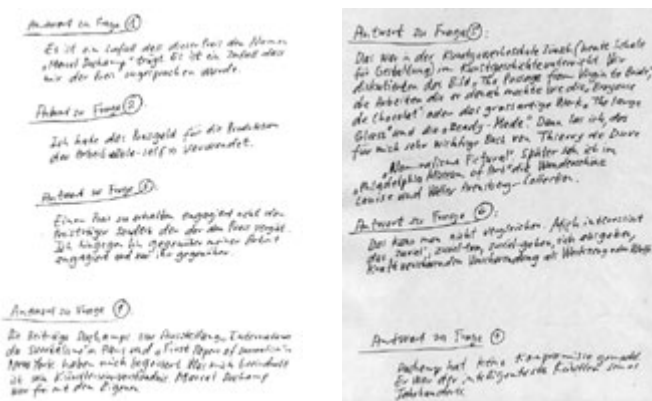 Antwort zu Frage ①
Es ist ein Zufall dass dieser Preis den Namen
"Marcel Duchamp" trägt. Es ist ein Zufall dass
mir der Preis zugesprochen wurde.
Antwort zu Frage ②
Ich habe das Preisgeld für die Produktion
der Arbeit verwendet.
Antwort zu Frage ③
Einen Preis zu erhalten engagiert nicht den
Preisträger sondern den der den Preis vergibt.
Ich hingegen bin gegenüber meiner Arbeit
engagiert und nur ihr gegenüber.
Antwort zu Frage ④
Die Beiträge Duchamps zur Ausstellung Internationale
du Surréalisme in Paris und "First Papers of Surrealism" in
New York haben mich begeistert. Was mich beeindruckt
ist sein Künstlerselbstverständnis. Marcel Duchamp
war
Antwort zu Frage ⑤:
Das war in der Kunstgewerbeschule Zürich (heute Schule
für Gestaltung) im Kunstgeschichteunterricht. Wir
diskutierten das Bild "The Passage from Virgin to Bride",
die Arbeiten die er danach machte wie die "Broyeuse
de Chocolat" oder das grossartige Werk "The Large
Glass" und die "Ready-Made". Dann las ich das
für mich sehr wichtige Buch von Thierry de Duve
"Nominalisme Pictural". Später sah ich im
"Philadelphia Museum of Art" die
Louise und Walter Arensberg-Collection.
Antwort zu Frage ⑥:
Das kann man nicht vergleichen. Mich interessiert
das
Antwort zu Frage
Duchamp hat keine Kompromisse gemacht.
Er war der intelligenteste Künstler seines
Jahrhunderts.